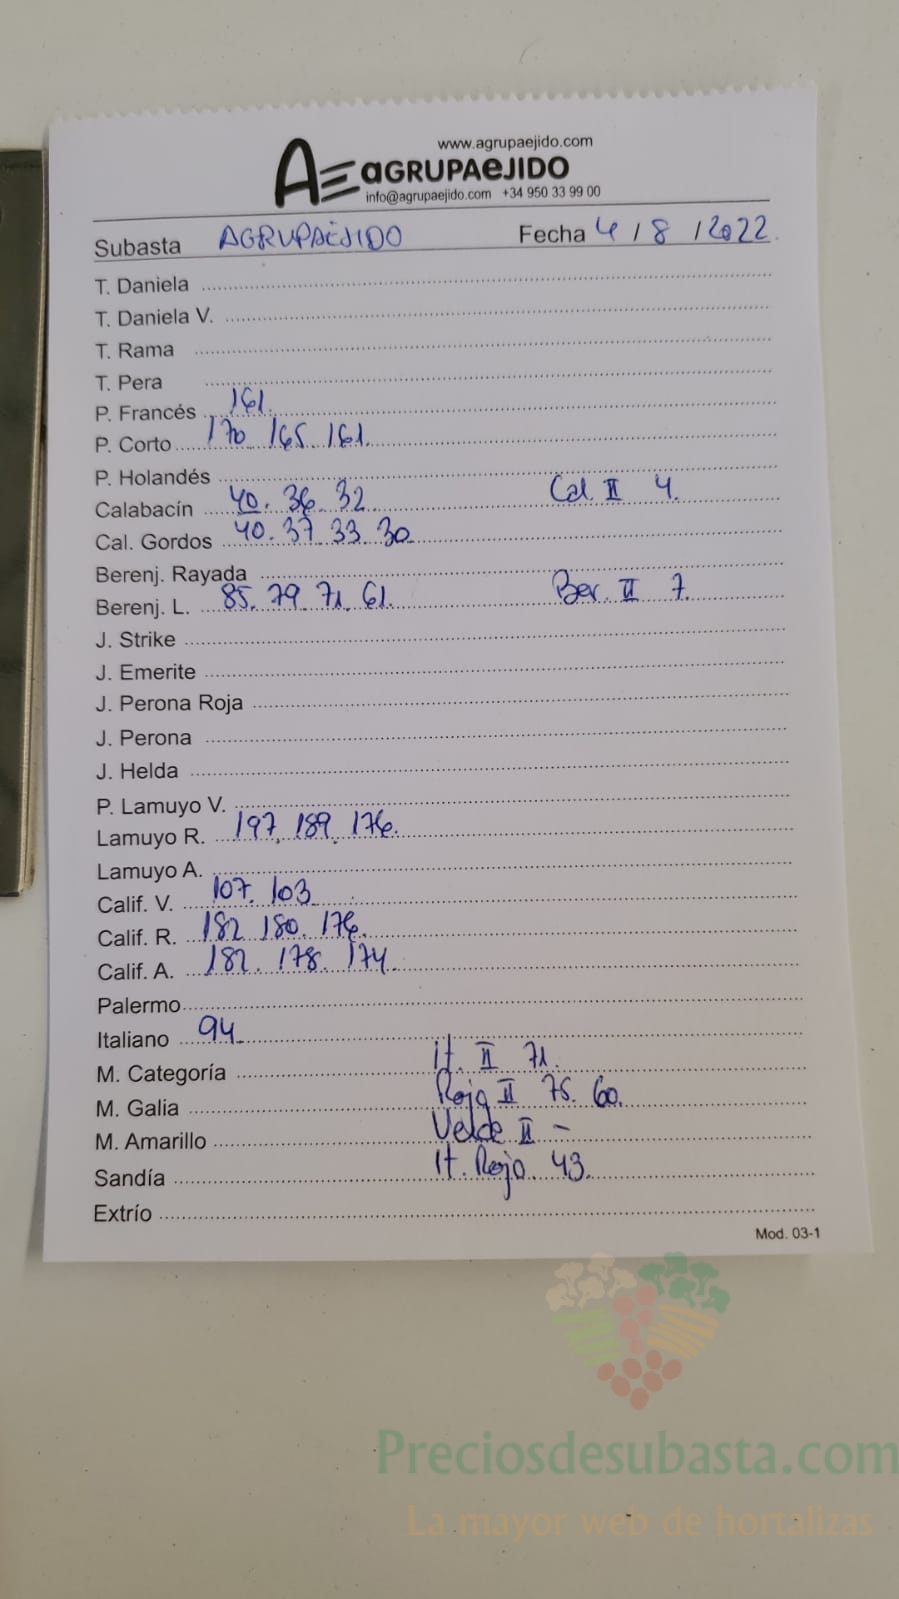 www.agrupaejido.com
AE aGRUPAeJIDO
info@agrupaejido.com +34 950 33 99 00
Subasta AGRUPAEJIDO Fecha 4 / 8 / 2022
T. Daniela
T. Daniela V.
T. Rama
T. Pera
P. Francés 161.
P. Corto 170 165 161.
P. Holandés
Calabacín 40. 36 32 Cal II 4.
Cal. Gordos 40. 37 33 30
Berenj. Rayada
Berenj. L. 85. 79 71. 61. Ber. II 7.
J. Strike
J. Emerite
J. Perona Roja
J. Perona
J. Helda
P. Lamuyo V.
Lamuyo R. 197. 189. 176.
Lamuyo A.
Calif. V. 107. 103
Calif. R. 182 180. 176.
Calif. A. 182. 178. 174.
Palermo
Italiano 94.
M. Categoría It. II 71.
M. Galia Rojo II 75. 60.
M. Amarillo Verde II -
Sandía It. Rojo 43.
Extrío
Mod. 03-1
Preciosdesubasta.com
La mayor web de hortalizas